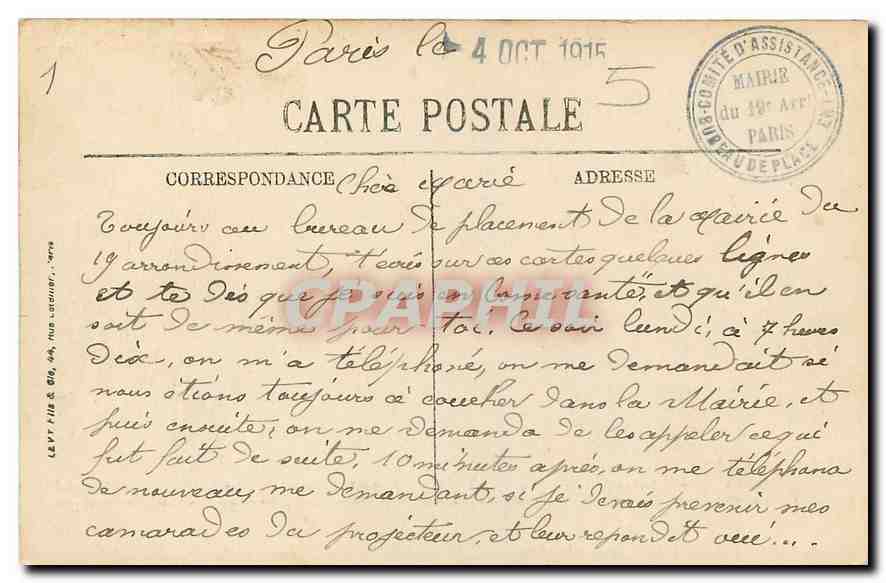 Paris le 4 OCT 1915
1
5
COMITÉ D'ASSISTANCE
MAIRIE
du 19e Arrt
PARIS
BUREAU DE PLACEMENT
CARTE POSTALE
CORRESPONDANCE
ADRESSE
Chère Marie
Toujours au bureau de placement de la Mairie du
19 arrondissement, t'ecris sur ces cartes quelques lignes
et te dis que je suis en bonne santé, et qu'il en
soit de même pour toi. Ce soir lundi, à 7 heures
dix, on m'a téléphoné, on me demandait si
nous étions toujours à coucher dans la Mairie, et
puis ensuite, on me demanda de les appeler ce qui
fut fait de suite. 10 minutes après, on me téléphona
de nouveau, me demandant, si je devais prevenir mes
camarades du projecteur, et leur repondit oui...
LEVY Fils & Cie, 44, Rue Letellier, Paris
CPAPHIL